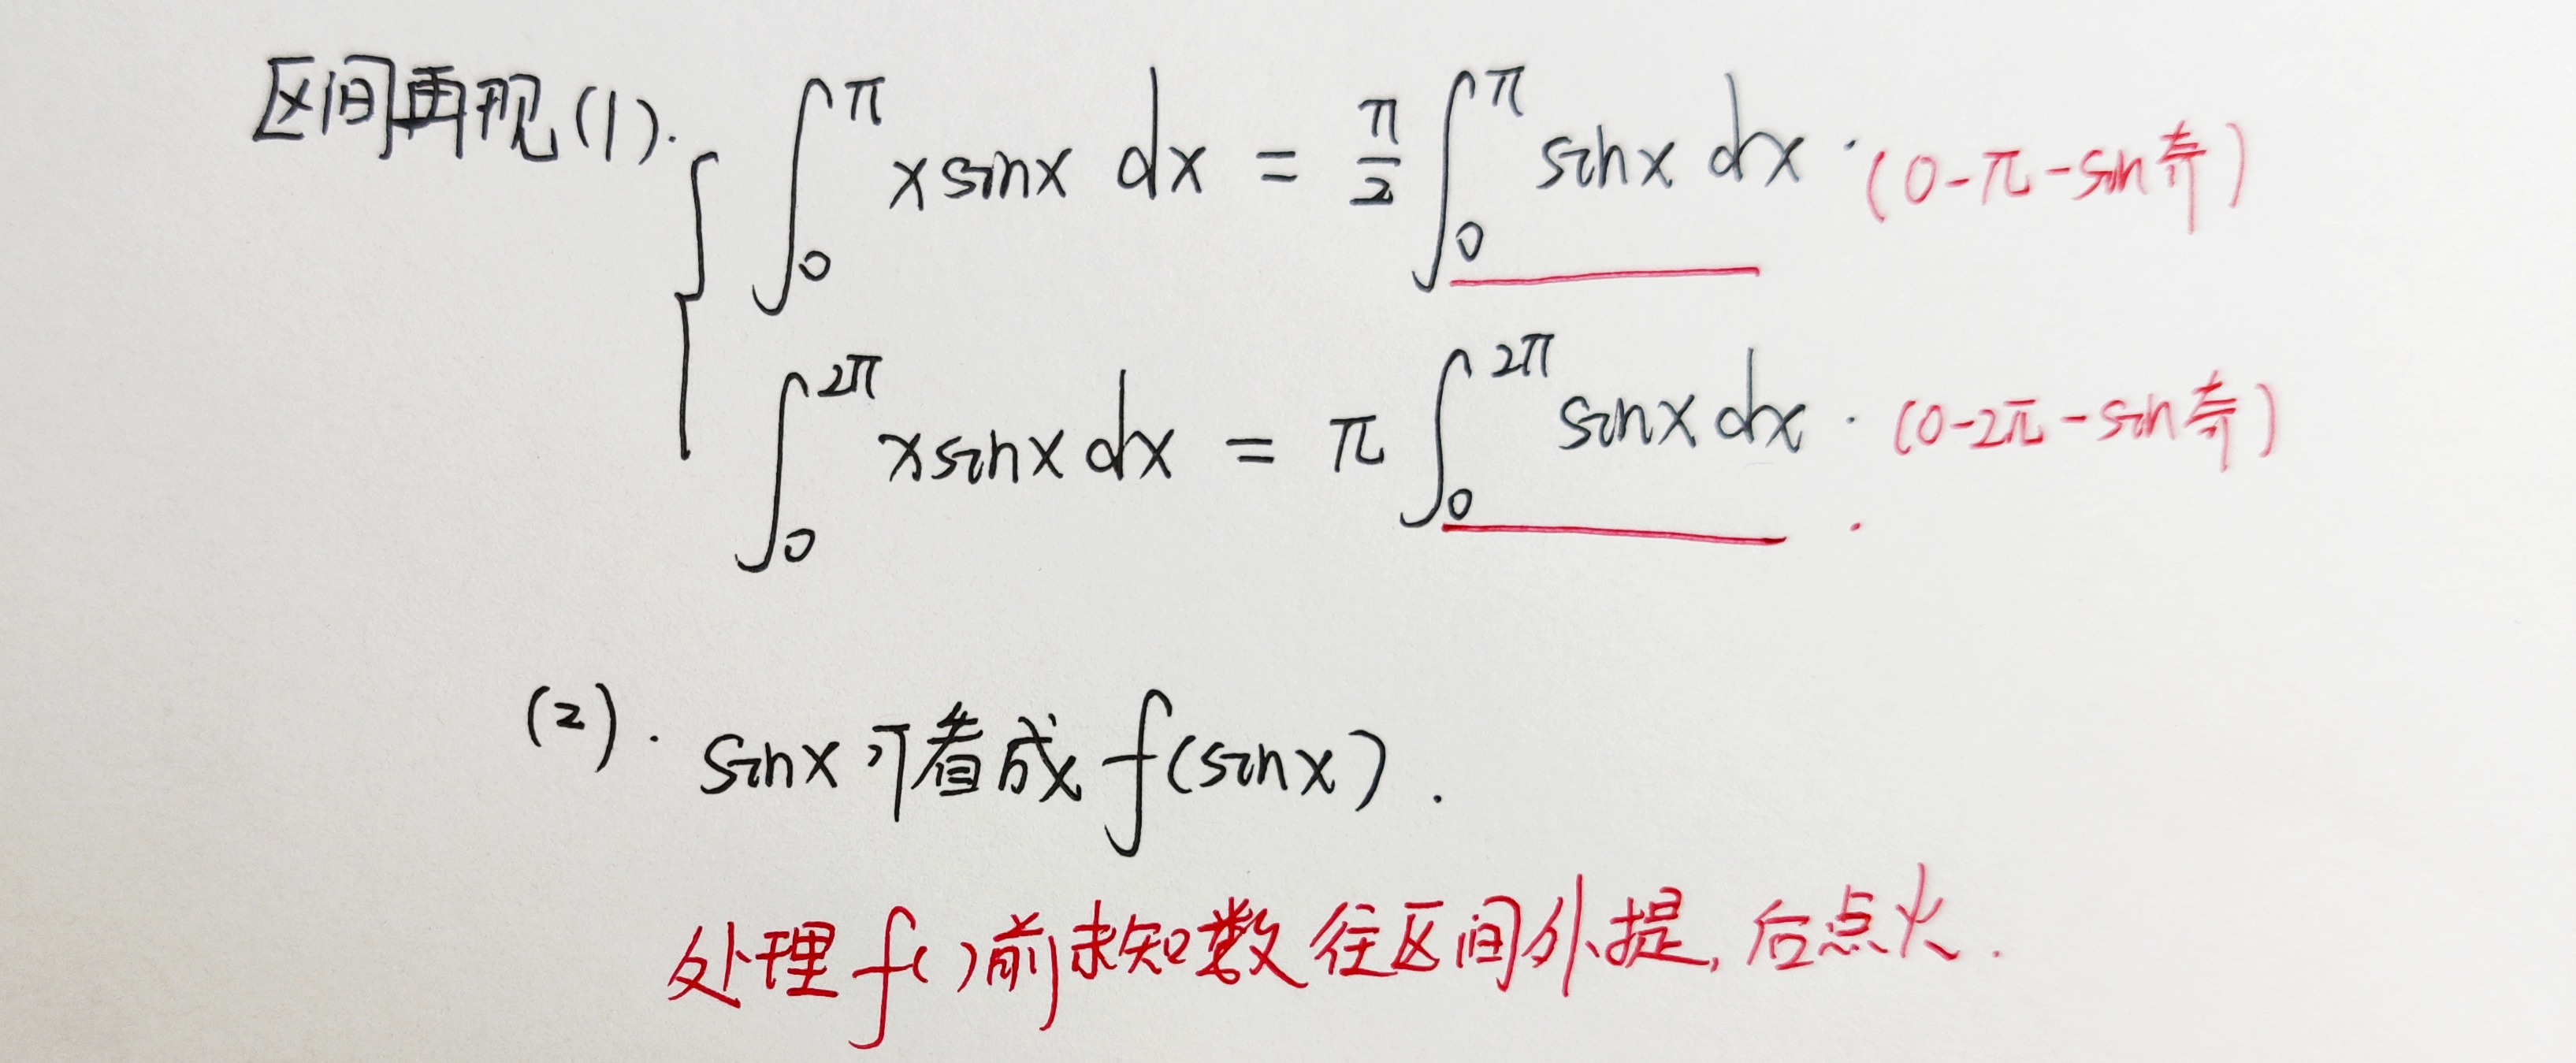 区间再现(1). ∫₀^π x sinx dx = π/2 ∫₀^π sinx dx · (0-π-sin奇)
∫₀^2π x sinx dx = π ∫₀^2π sinx dx · (0-2π-sin奇).
(2). sinx 可看成 f(sinx).
处理 f( )前未知数往区间外提, 后点火.